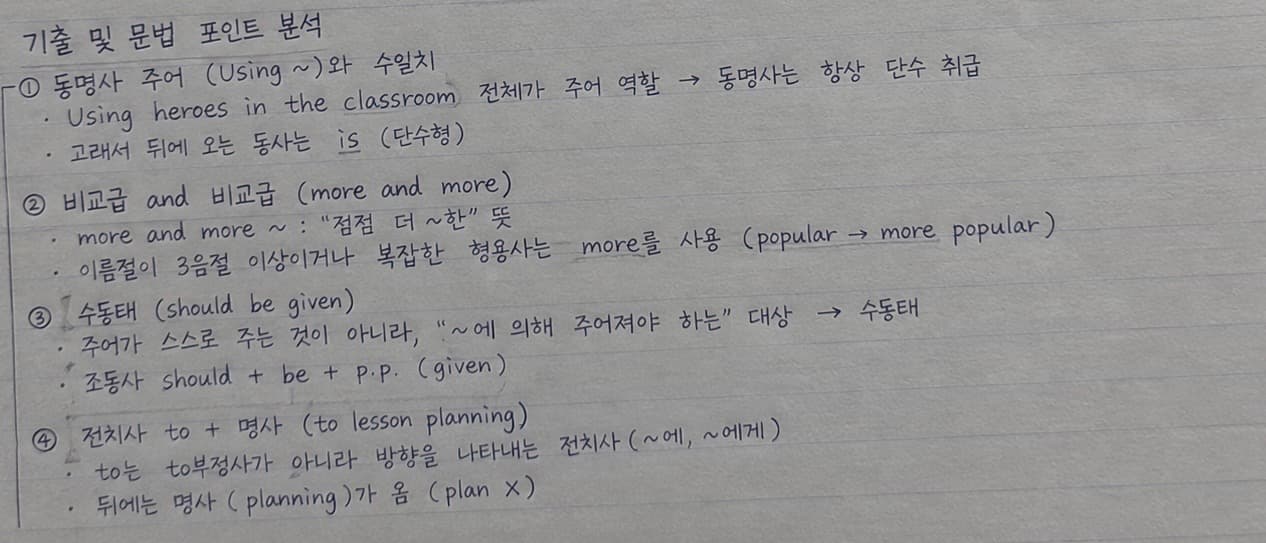 기출 및 문법 포인트 분석
① 동명사 주어 (Using ~)와 수일치
· Using heroes in the classroom 전체가 주어 역할 → 동명사는 항상 단수 취급
· 고래서 뒤에 오는 동사는 is (단수형)
② 비교급 and 비교급 (more and more)
· more and more ~ : "점점 더 ~한" 뜻
· 이름절이 3음절 이상이거나 복잡한 형용사는 more를 사용 (popular → more popular)
③ 수동태 (should be given)
· 주어가 스스로 주는 것이 아니라, "~에 의해 주어져야 하는" 대상 → 수동태
· 조동사 should + be + p.p. (given)
④ 전치사 to + 명사 (to lesson planning)
· to는 to부정사가 아니라 방향을 나타내는 전치사 (~에, ~에게)
· 뒤에는 명사 (planning)가 옴 (plan X)